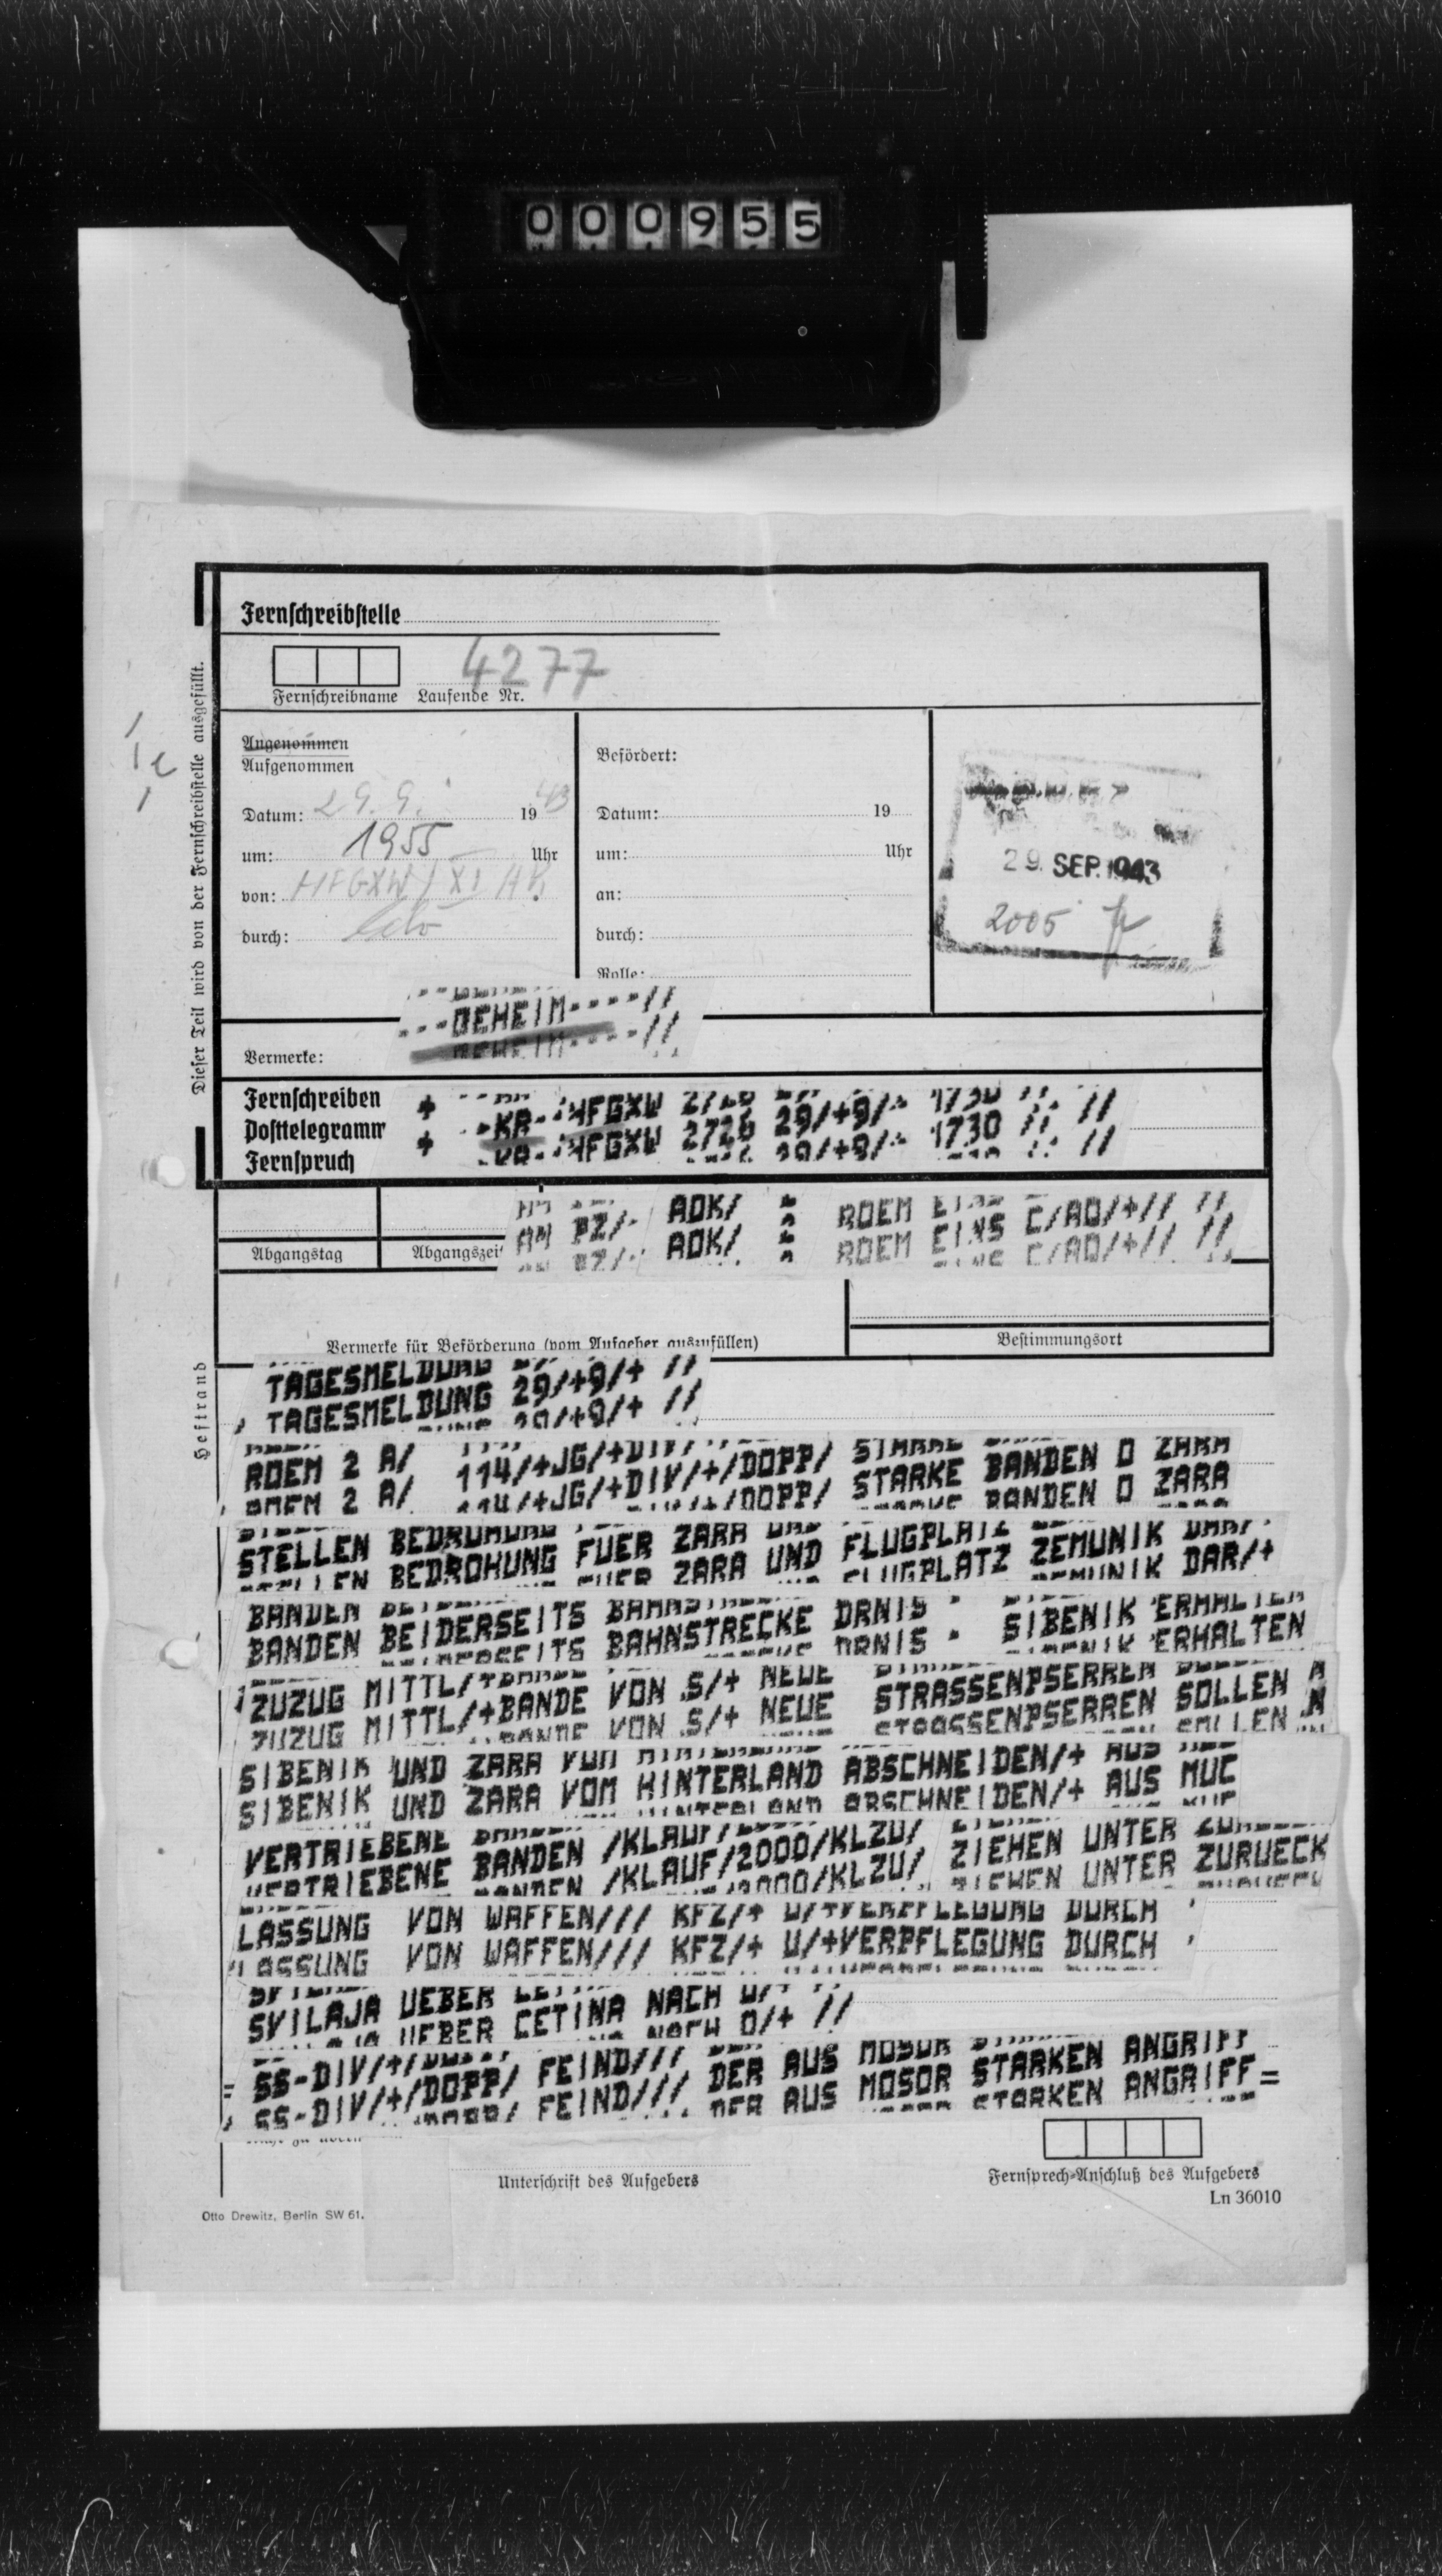 000955
Fernschreibstelle
4277
Fernschreibname Laufende Nr.
Angenommen
Aufgenommen
Datum: 29.9. 1943
um: 1955 Uhr
von: HFGXW / XI AK
durch:
Befördert:
Datum: 19
um: Uhr
an:
durch:
Rolle:
29. SEP. 1943
2005
Dieser Teil wird von der Fernschreibstelle ausgefüllt.
Ic
---GEHEIM----//
Vermerke:
Fernschreiben
Posttelegramm
Fernspruch
+ -KR- HFGXW 2726 29/+9/+ 1730 // //
Abgangstag Abgangszeit
AN PZ/- AOK/ 2 ROEM EINS C/AO/+// //
Vermerke für Beförderung (vom Aufgeber auszufüllen)
Bestimmungsort
Heftrand
TAGESMELDUNG 29/+9/+ //
ROEM 2 A/ 114/+JG/+DIV/+/DOPP/ STARKE BANDEN O ZARA
STELLEN BEDROHUNG FUER ZARA UND FLUGPLATZ ZEMUNIK DAR/+
BANDEN BEIDERSEITS BAHNSTRECKE DRNIS - SIBENIK ERHALTEN
ZUZUG MITTL/+BANDE VON S/+ NEUE STRASSENPSERREN SOLLEN
SIBENIK UND ZARA VOM HINTERLAND ABSCHNEIDEN/+ AUS MUC
VERTRIEBENE BANDEN /KLAUF/2000/KLZU/ ZIEHEN UNTER ZURUECK
LASSUNG VON WAFFEN/// KFZ/+ U/+VERPFLEGUNG DURCH
SVILAJA UEBER CETINA NACH O/+ //
SS-DIV/+/DOPP/ FEIND/// DER AUS MOSOR STARKEN ANGRIFF=
Unterschrift des Aufgebers
Fernsprech-Anschluß des Aufgebers
Ln 36010
Otto Drewitz, Berlin SW 61.